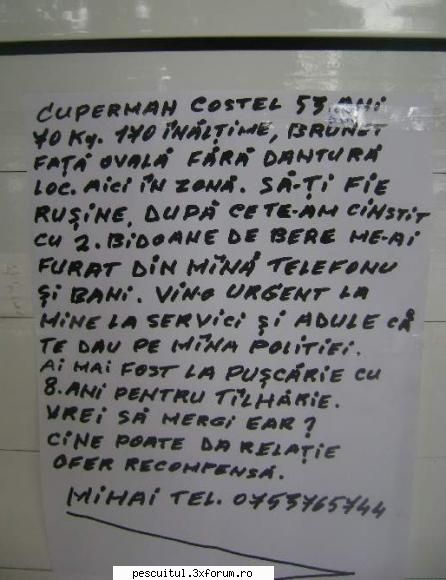 CUPERMAN COSTEL 53 ANI
70 Kg. 170 ÎNĂLȚIME, BRUNET
FAȚĂ OVALĂ FĂRĂ DANTURĂ
LOC. AICI ÎN ZONĂ. SĂ-ȚI FIE
RUȘINE, DUPĂ CE TE-AM CINSTIT
CU 2. BIDOANE DE BERE ME-AI
FURAT DIN MÎNĂ TELEFONU
ȘI BANI. VINO URGENT LA
MINE LA SERVICI ȘI ADULE CĂ
TE DAU PE MÎNA POLITIEI.
AI MAI FOST LA PUȘCĂRIE CU
8. ANI PENTRU TÎLHĂRIE.
VREI SĂ MERGI EAR?
CINE POATE DA RELAȚIE
OFER RECOMPENSĂ.
MIHAI TEL. 0753765744
pescuitul.3xforum.ro